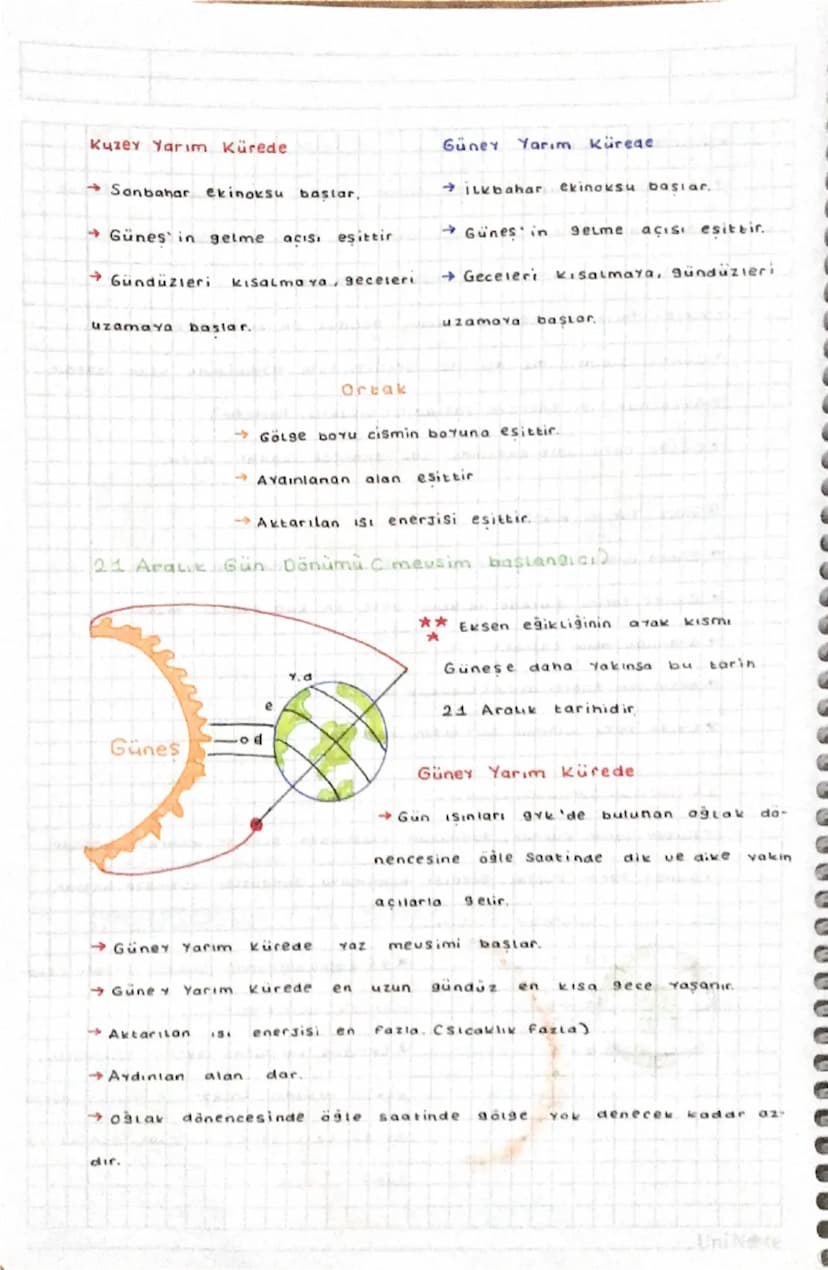 Kuzey Yarım Kürede
→ Sonbahar ekinoksu başlar.
→ Güneş'in gelme açısı eşittir
→ Gündüzleri kısalmaya, geceleri
uzamaya başlar.
Güney Yarım Kürede
→ İlkbahar ekinoksu başlar.
→ Güneş'in gelme açısı eşittir.
→ Geceleri kısalmaya, gündüzleri
uzamaya başlar.
Ortak
→ Gölge boyu cismin boyuna eşittir.
→ Aydınlanan alan eşittir
→ Aktarılan ısı enerjisi eşittir.
21 Aralık Gün Dönümü (mevsim başlangıcı)
Güneş
y.d
e
od
★★★ Eksen eğikliğinin ayak kısmı
Güneşe daha yakınsa bu tarih
21 Aralık tarihidir
Güney Yarım Kürede
→ Gün ışınları gyk'de bulunan oğlak dö-
nencesine öğle saatinde dik ve dike yakın
açılarla gelir.
→ Güney Yarım kürede yaz mevsimi başlar.
→ Güney Yarım Kürede en uzun gündüz en kısa gece yaşanır.
→ Aktarılan ısı enerjisi en fazla. (Sıcaklık fazla)
→ Aydınlan alan dar.
→ Oğlak dönencesinde öğle saatinde gölge yok denecek kadar az-
dır.
UniNote